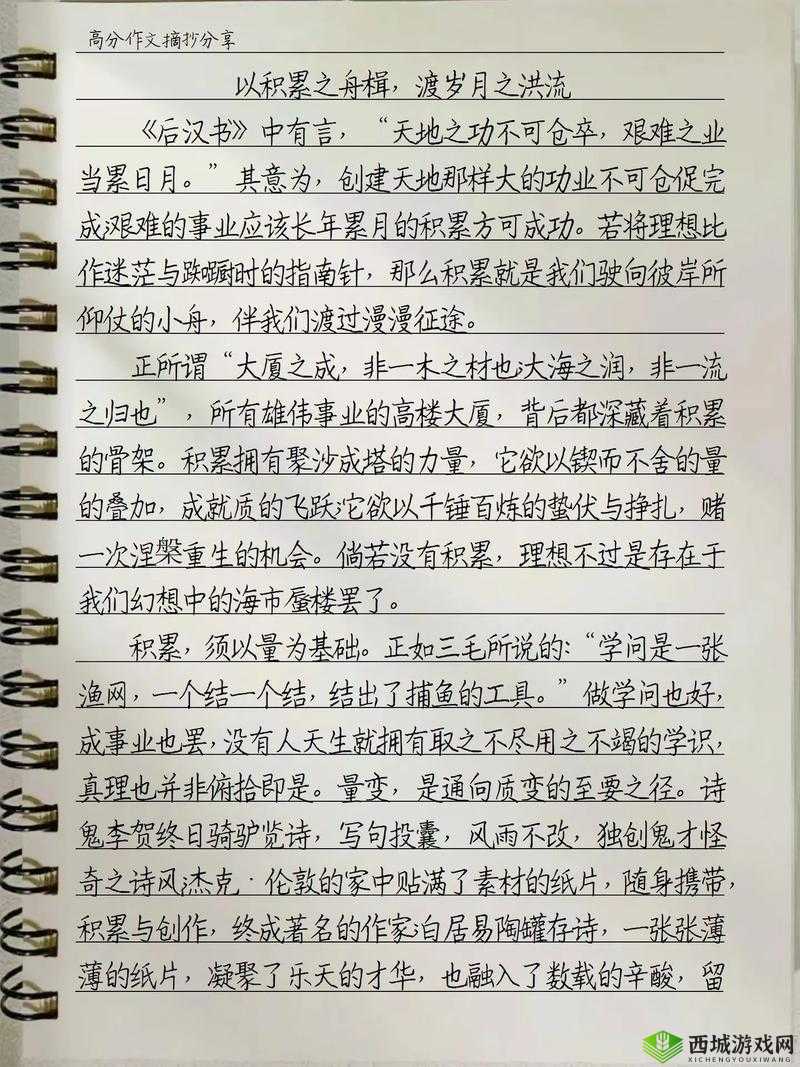 高分作文摘抄分享
以积累之舟楫，渡岁月之洪流
《后汉书》中有言，“天地之功不可仓卒，艰难之业
当累日月。”其意为，创建天地那样大的功业不可仓促完
成;艰难的事业应该长年累月的积累方可成功。若将理想比
作迷茫与踟蹰时的指南针，那么积累就是我们驶向彼岸所
仰仗的小舟，伴我们渡过漫漫征途。
正所谓“大厦之成，非一木之材也;大海之润，非一流
之归也”，所有雄伟事业的高楼大厦，背后都深藏着积累
的骨架。积累拥有聚沙成塔的力量，它欲以锲而不舍的量
的叠加，成就质的飞跃;它欲以千锤百炼的蛰伏与挣扎，赌
一次涅槃重生的机会。倘若没有积累，理想不过是存在于
我们幻想中的海市蜃楼罢了。
积累，须以量为基础。正如三毛所说的:“学问是一张
渔网，一个结一个结，结出了捕鱼的工具。”做学问也好，
成事业也罢，没有人天生就拥有取之不尽用之不竭的学识，
真理也并非俯拾即是。量变，是通向质变的至要之径。诗
鬼李贺终日骑驴览诗，写句投囊，风雨不改，独创鬼才怪
奇之诗风;杰克·伦敦的家中贴满了素材的纸片，随身携带，
积累与创作，终成著名的作家;白居易陶罐存诗，一张张薄
薄的纸片，凝聚了乐天的才华，也融入了数载的辛酸，留
西城游戏网
XICHENGYOUXIWANG